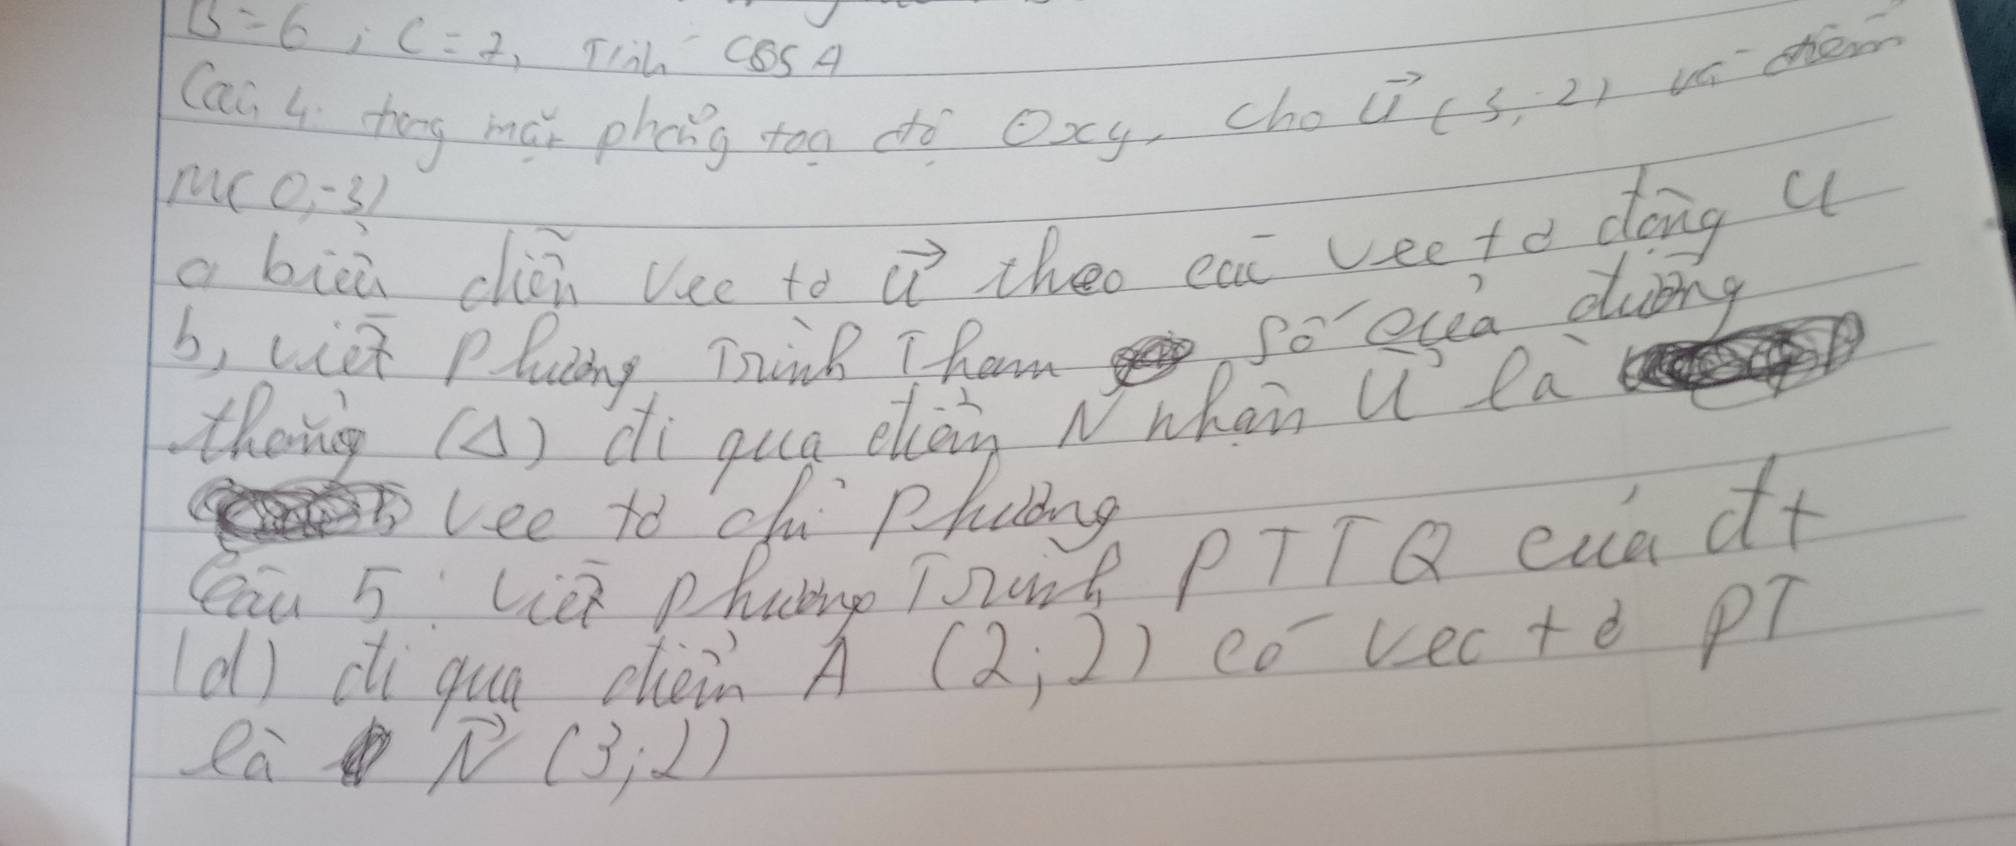 B=6; C=7, Tính COS A
Câu 4: trong mặt phẳng tọa độ Oxy, cho u⃗ (3; 2) và điểm
M(0,-3)
a biểu diễn Vec tơ u⃗ theo các vec tơ động u
b, viết Phương Trình Tham Số của đường
thẳng (Δ) đi qua điểm N nhận u⃗ là
vec tơ chỉ phương
Câu 5: Viết phương Trình PTTQ của đt
(d) đi qua điểm A (2; 2) có vec tơ PT
là N⃗ (3; 2)